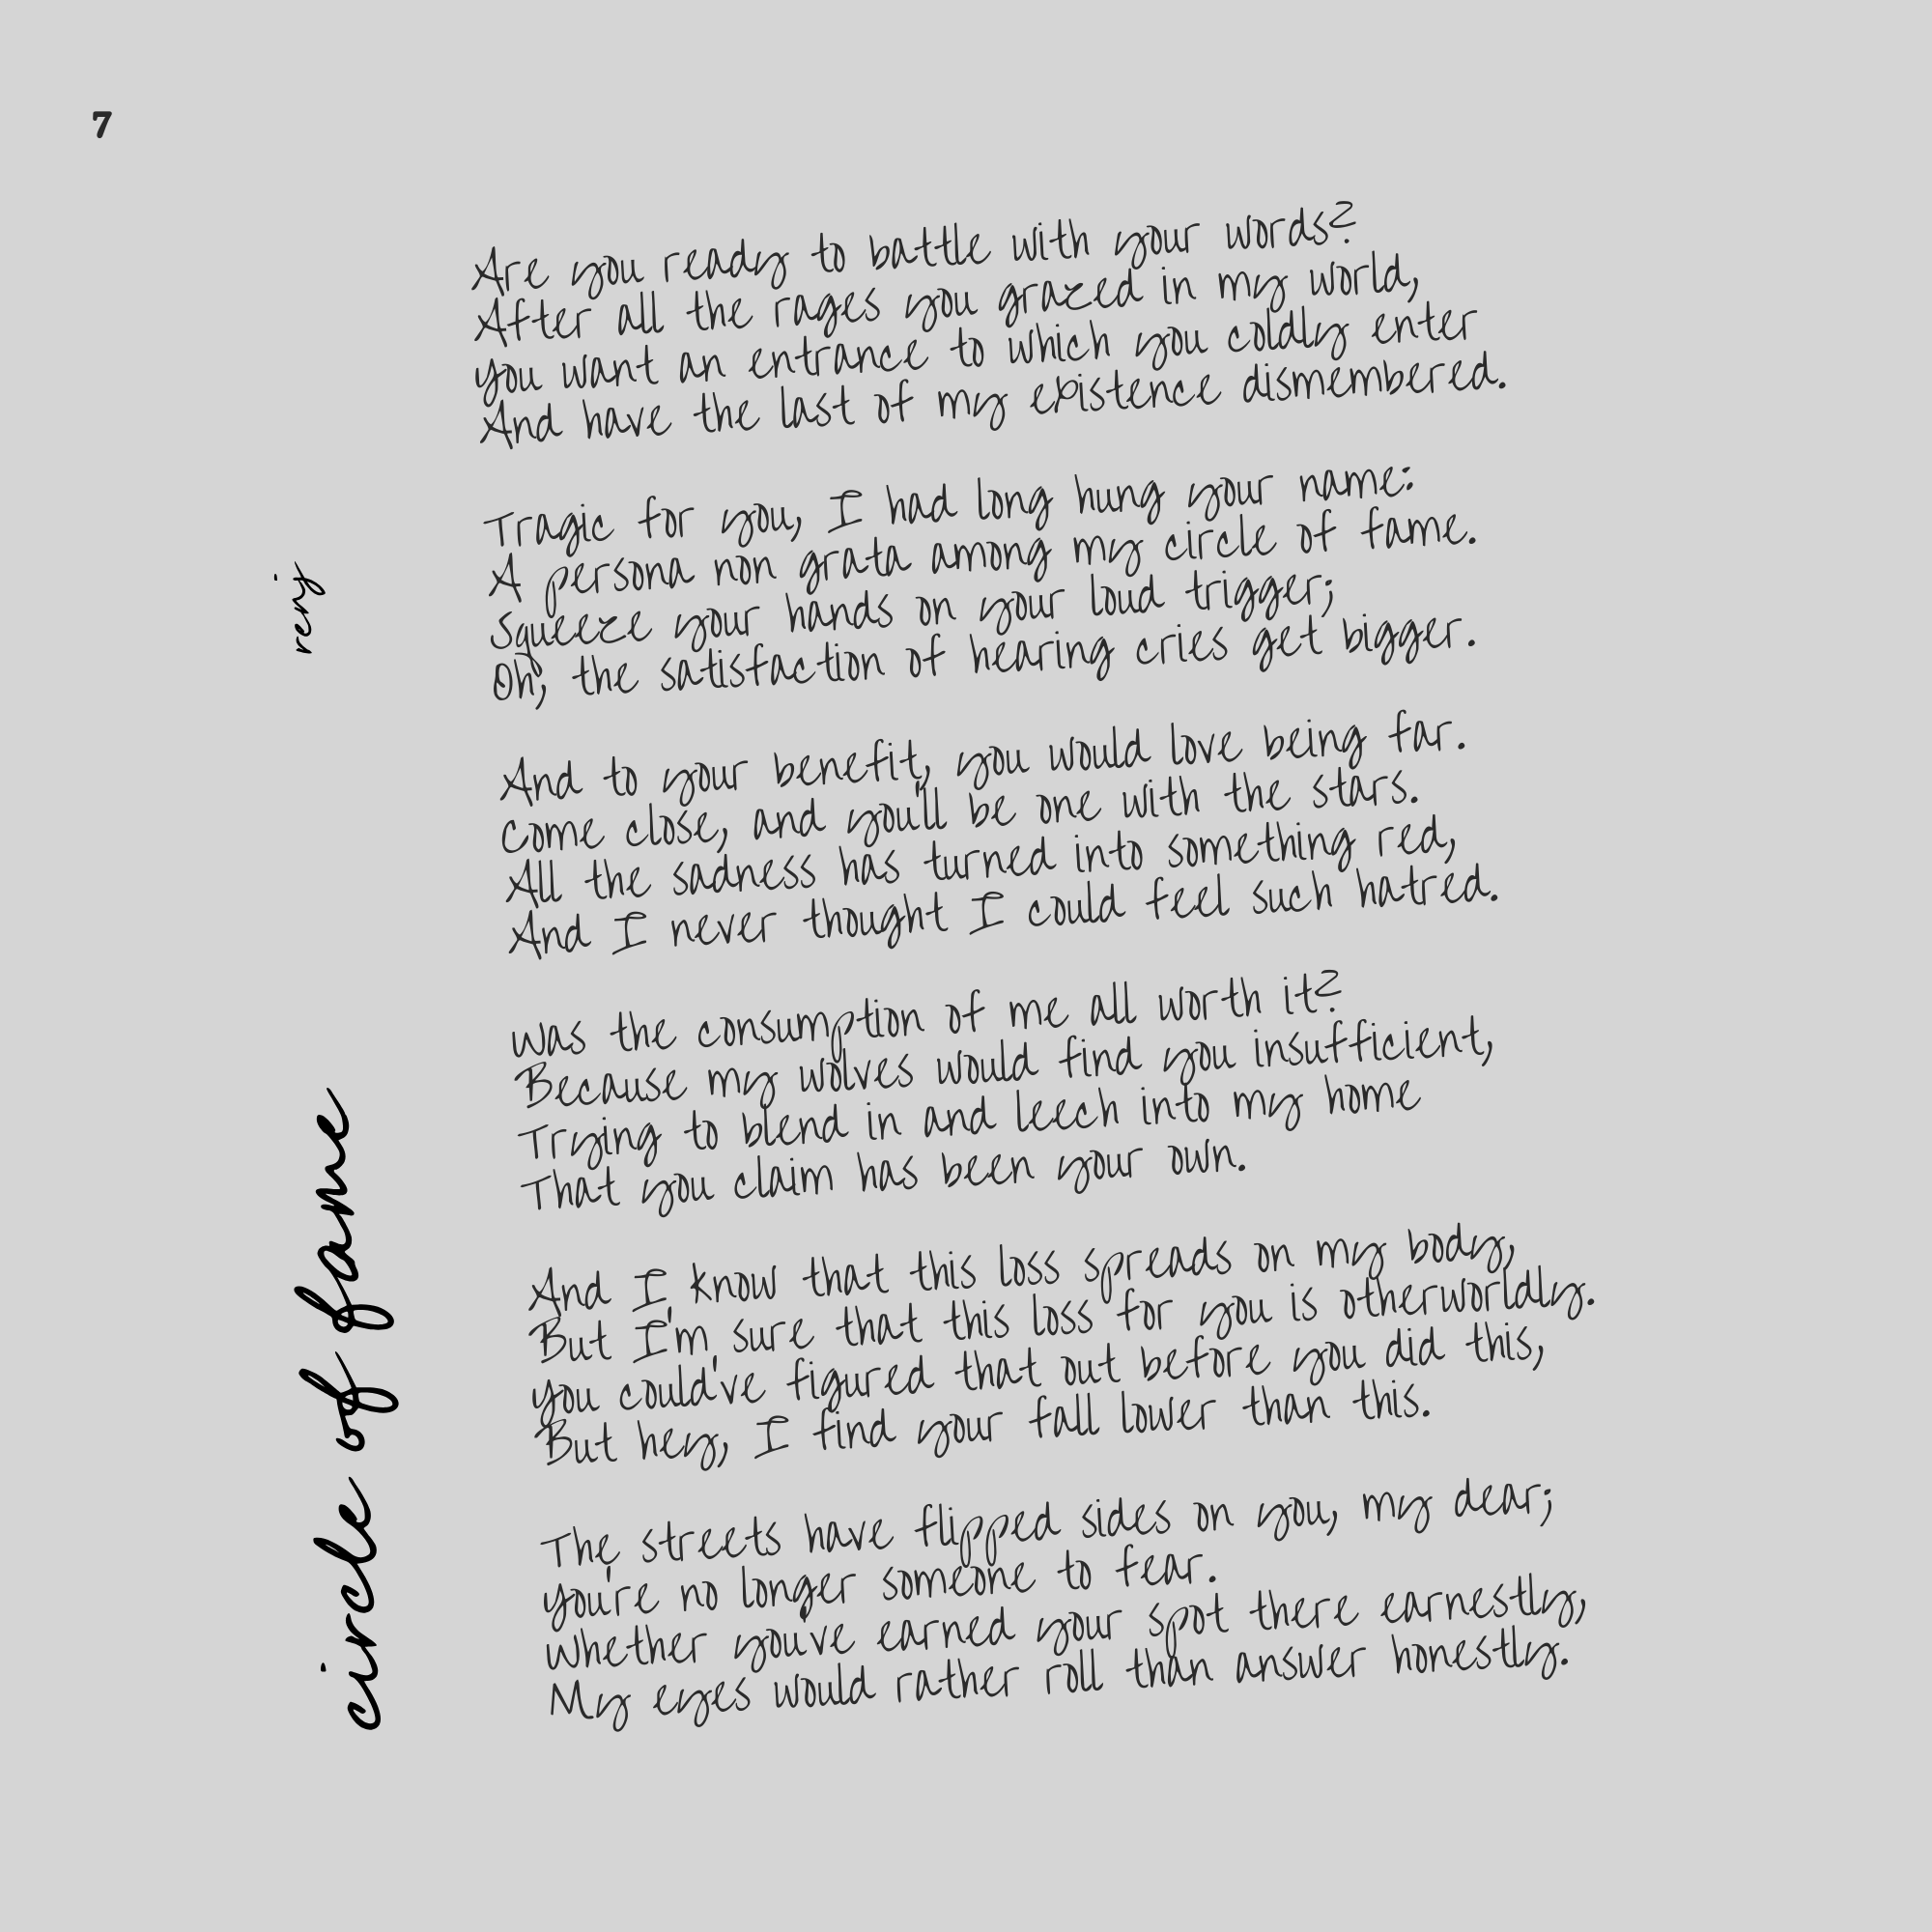 7
circle of fame
reij
Are you ready to battle with your words?
After all the rages you grazed in my world,
you want an entrance to which you coldly enter
And have the last of my existence dismembered.
Tragic for you, I had long hung your name:
A persona non grata among my circle of fame.
Squeeze your hands on your loud trigger;
Oh, the satisfaction of hearing cries get bigger.
And to your benefit, you would love being far.
Come close, and you'll be one with the stars.
All the sadness has turned into something red,
And I never thought I could feel such hatred.
Was the consumption of me all worth it?
Because my wolves would find you insufficient,
Trying to blend in and leech into my home
That you claim has been your own.
And I know that this loss spreads on my body,
But I'm sure that this loss for you is otherworldly.
you could've figured that out before you did this,
But hey, I find your fall lower than this.
The streets have flipped sides on you, my dear;
you're no longer someone to fear.
Whether you've earned your spot there earnestly,
My eyes would rather roll than answer honestly.